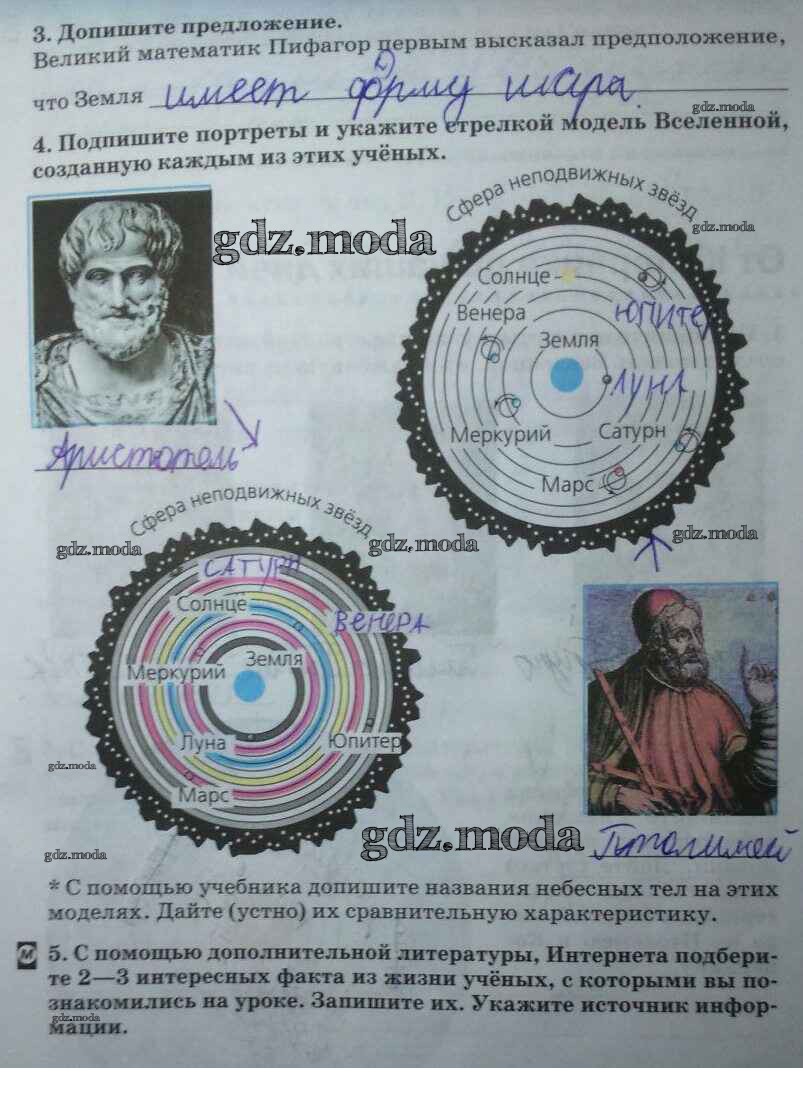 3. Допишите предложение.
Великий математик Пифагор первым высказал предположение,
что Земля имеет форму шара.
gdz.moda
4. Подпишите портреты и укажите стрелкой модель Вселенной,
созданную каждым из этих учёных.
Сфера неподвижных звёзд
gdz.moda
gdz.moda
Солнце
Венера
ЮПИТЕР
Земля
ЛУНА
Меркурий
Сатурн
Марс
Аристотель
Сфера неподвижных звёзд
gdz.moda
gdz.moda
gdz.moda
САТУРН
Солнце
ВЕНЕРА
Земля
Меркурий
Луна
Юпитер
gdz.moda
Марс
gdz.moda
Птолимей
gdz.moda
* С помощью учебника допишите названия небесных тел на этих
моделях. Дайте (устно) их сравнительную характеристику.
М
5. С помощью дополнительной литературы, Интернета подбери-
те 2—3 интересных факта из жизни учёных, с которыми вы по-
знакомились на уроке. Запишите их. Укажите источник инфор-
gdz.moda
мации.